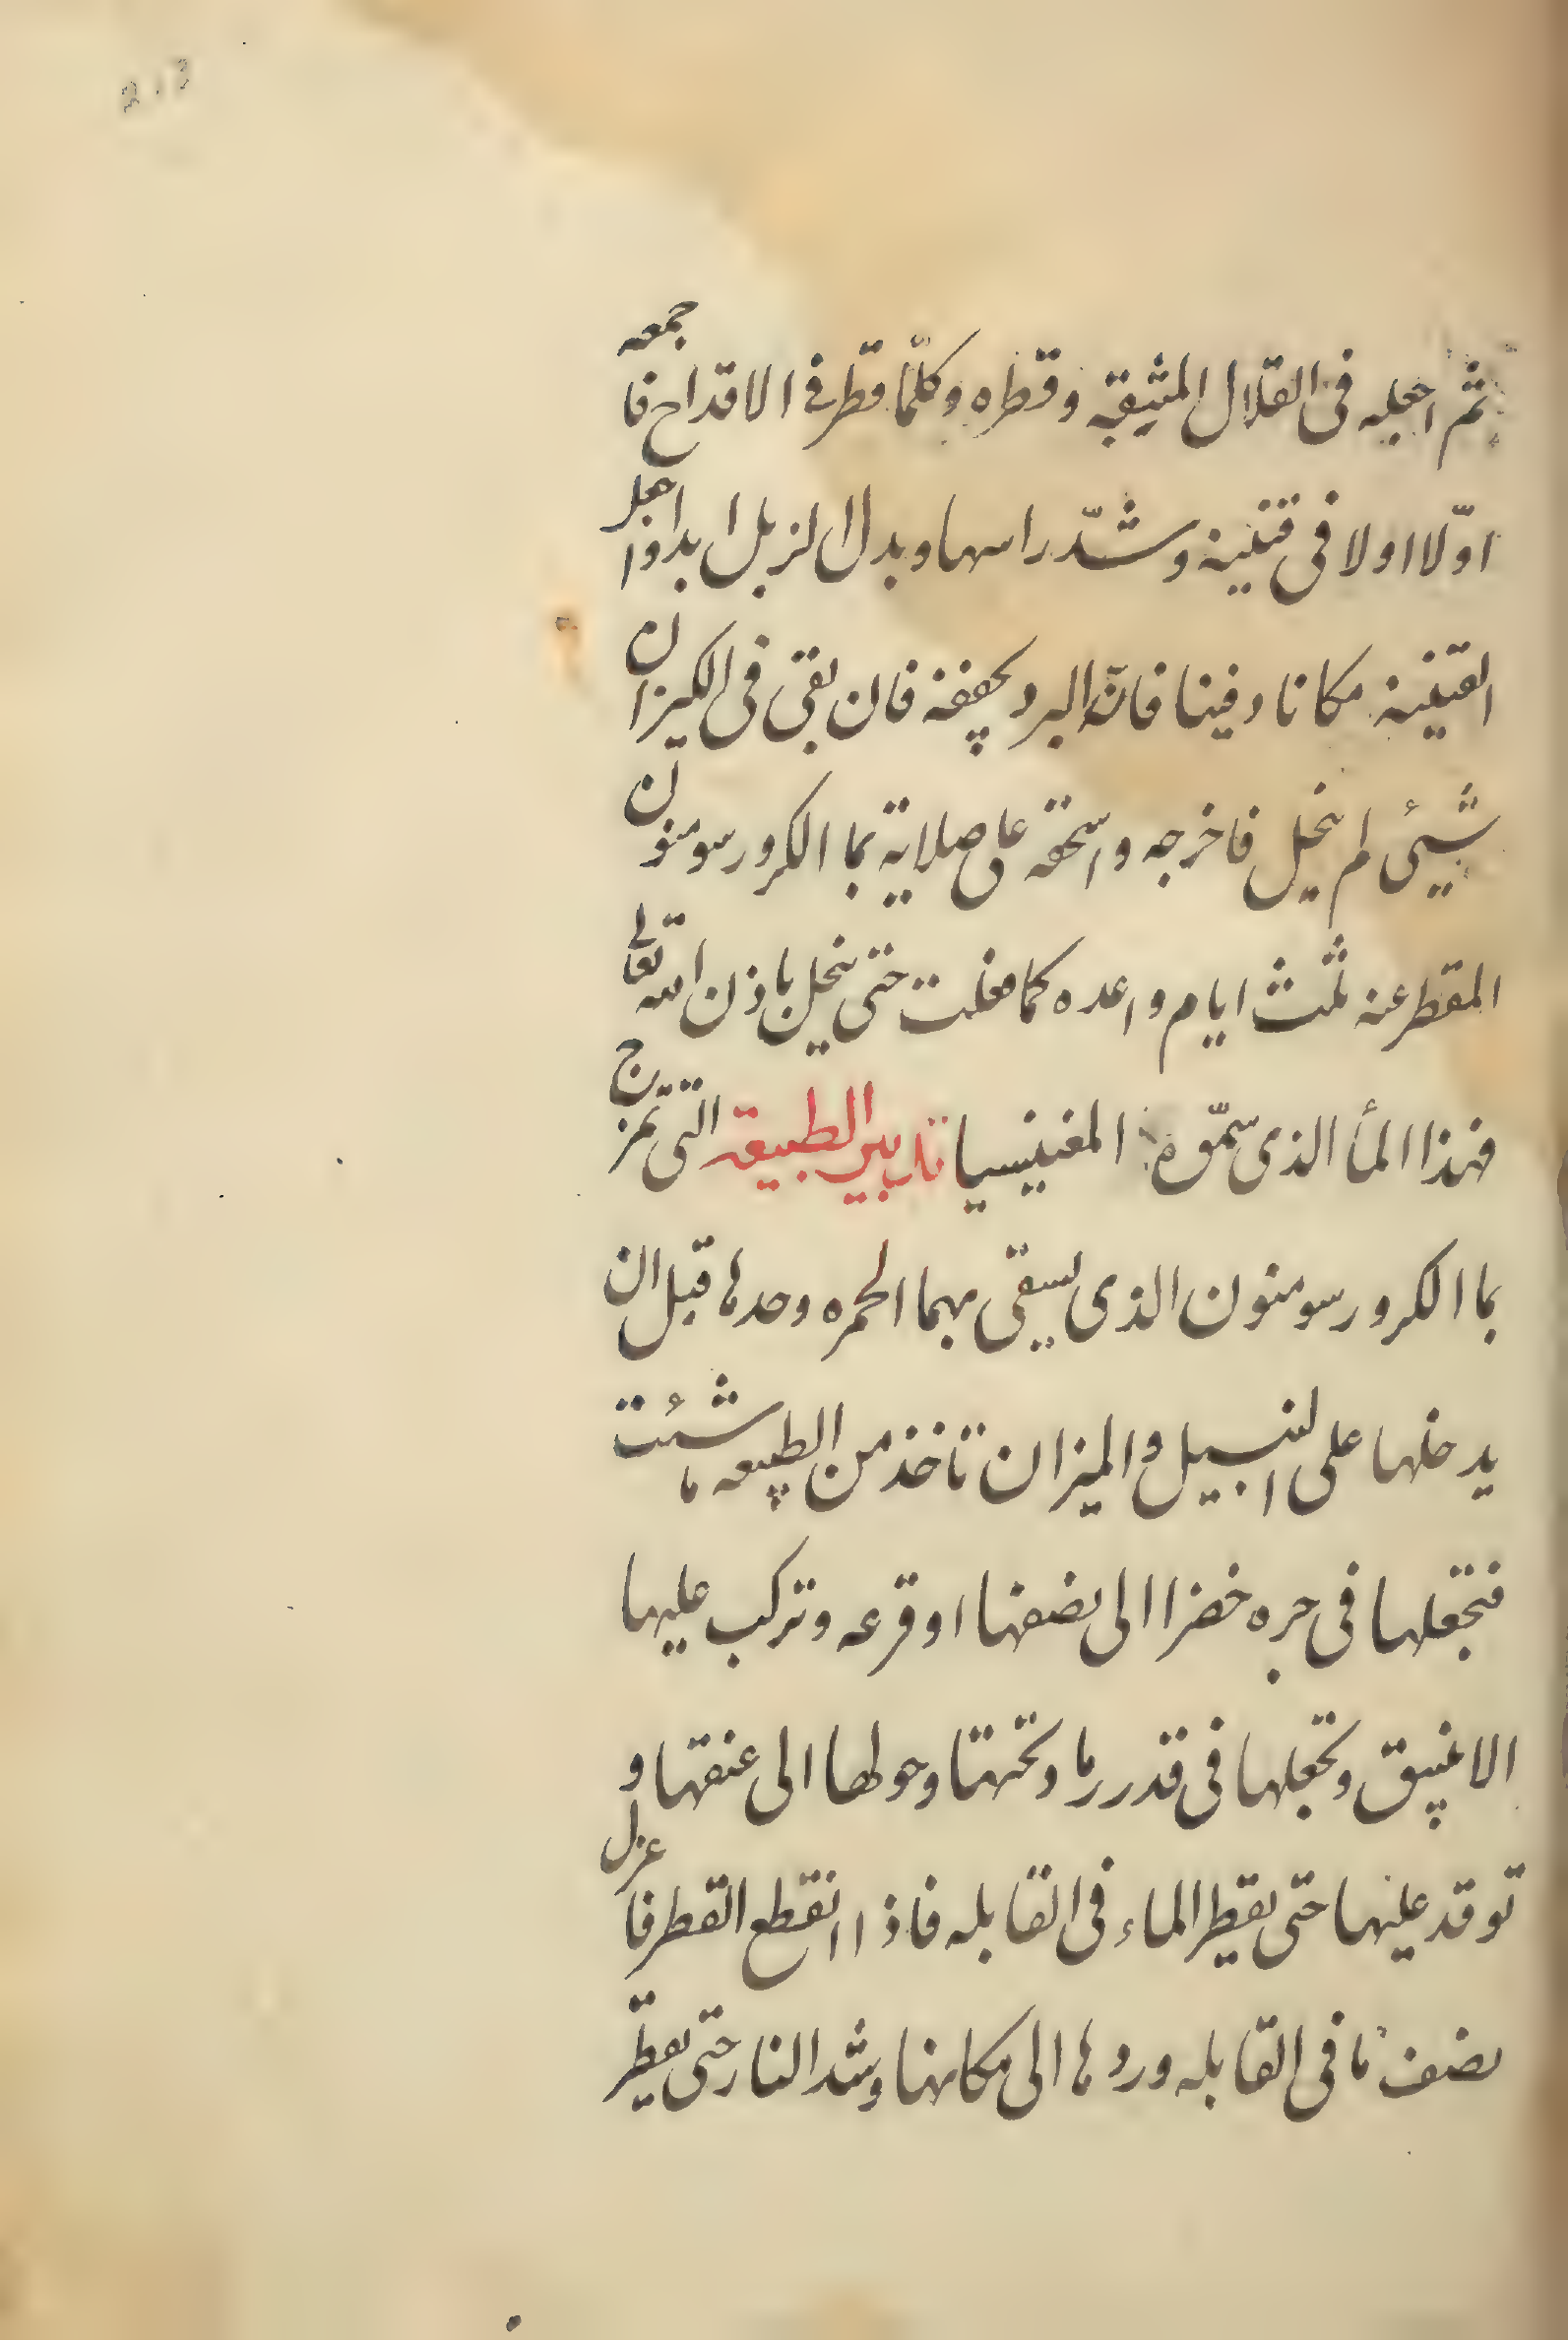 2.13
ثم اجعله فى القلال المثيقبه وقطره وكلّما قطر فى الاقداح فاجمعه
اوّلا اولا فى قنينة وشدّ راسها وبدل الزبل ابدا واجعل
القنينة مكانا دفينا فانّ البرد يجففه فان بقى فى الكيزان
شيئ لم ينحل فاخرجه واسحقه على صلاية بما الكرورسومنون
المقطر عنه ثلث ايام واعده كما فعلت حتى ينحل باذن الله تعالى
فهذا المأ الذى سمّوه المغنيسيا تدبير الطبيعة التى تمزج
بما الكرورسومنون الذى يسقى بهما الحمره وحدها قبل ان
يدخلها على التسبيل والميزان تاخذ من الطبيعه ما شئت
فتجعلها فى جره خضرا الى نصفها او قرعه وتركب عليها
الانبيق وتجعلها فى قدر رماد تحتها وحولها الى عنقها و
توقد عليها حتى يقطر الماء فى القابله فاذا انقطع القطر فاعزل
نصف ما فى القابله وردها الى مكانها وشد النار حتى يقطر